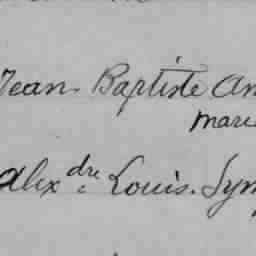 Jean-Baptiste An
mari
Alexdre Louis. Sym